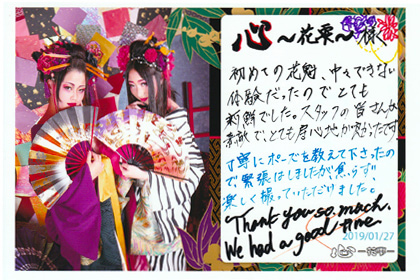 心〜花雫〜様
初めての花魁、中々できない
体験だったのでとても
新鮮でした。スタッフの皆さんが
素敵で、とても居心地が良かったです
丁寧にポーズを教えて下さったの
で緊張はしましたが気負らず
楽しく撮っていただけました。
Thank you so much.
We had a good time
2019/01/27
心〜花雫〜